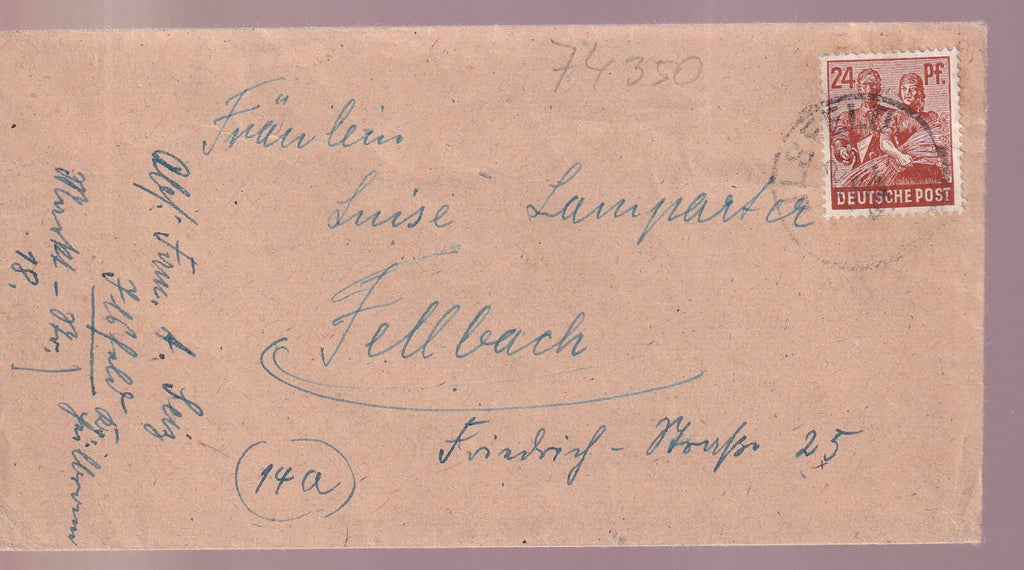 74350
24 Pf.
DEUTSCHE POST
Fräulein
Luise Lamparter
Fellbach
Friedrich-Straße 25
14a
Abs. Firma. A. Seiz
Ilsfeld Kr. Heilbronn
Markt-Str.
18.